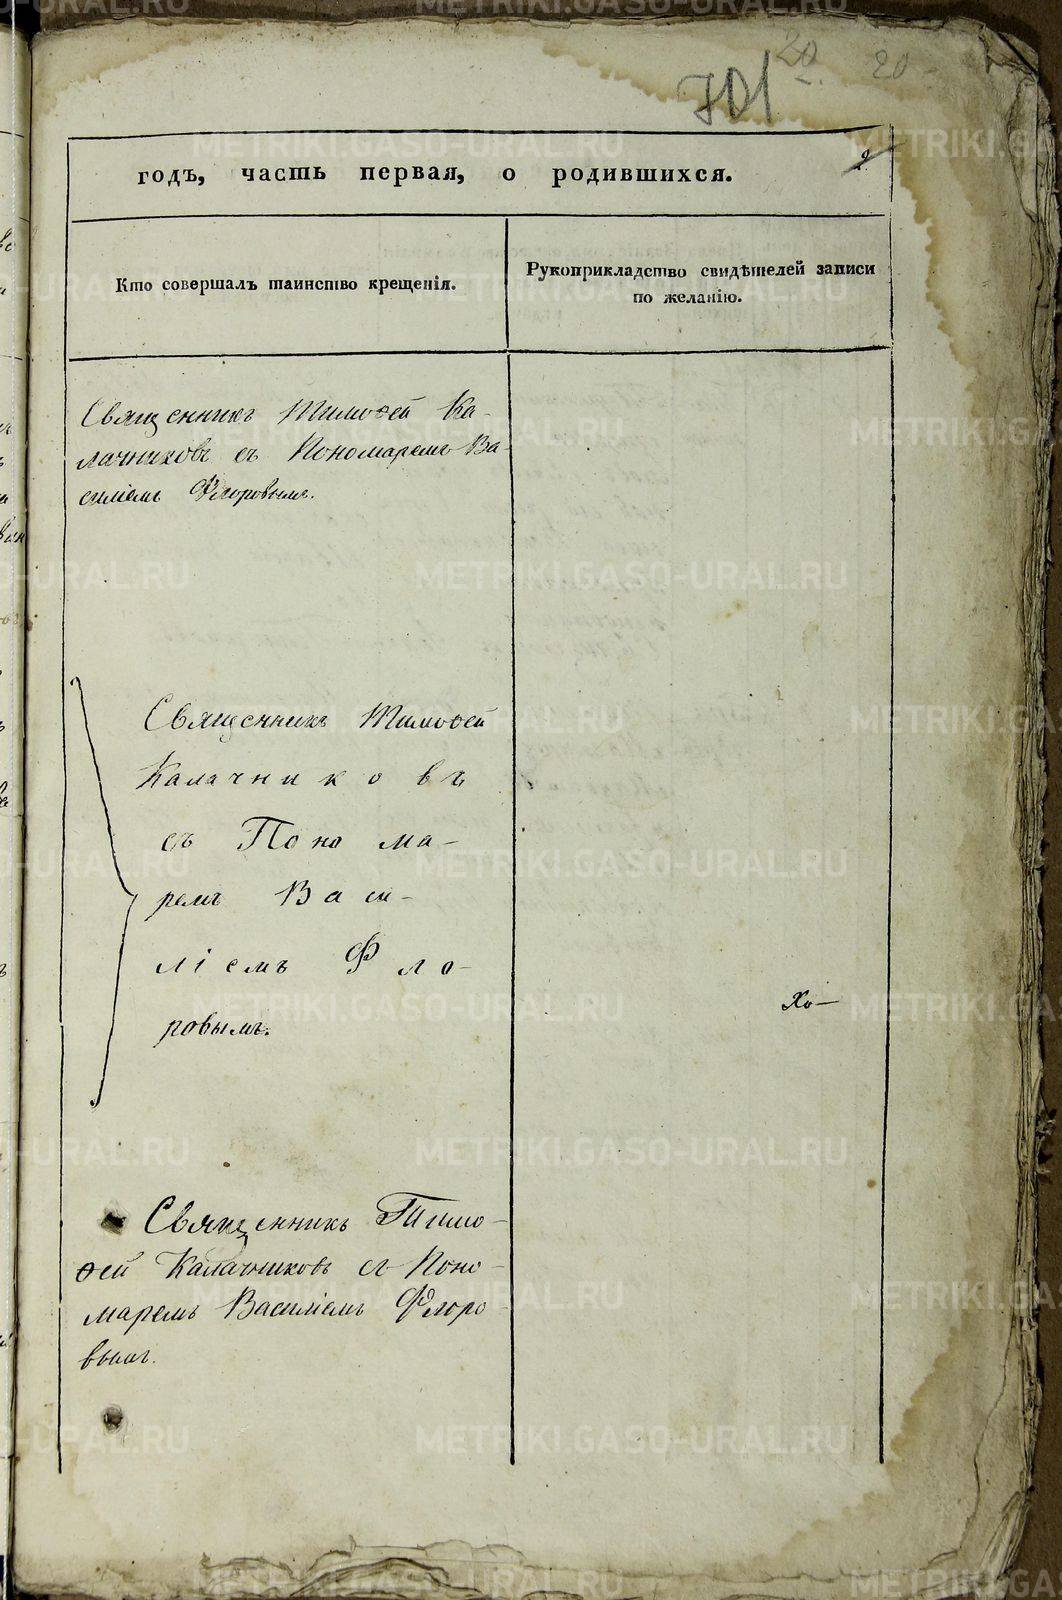 20
20
701
годъ, часть первая, о родившихся.
2.
Кто совершалъ таинство крещенія.
Рукоприкладство свидѣтелей записи
по желанію.
Священникъ Тимоѳей Ка-
лачниковъ съ Пономаремъ Ва-
силіемъ Флоровымъ.
Священникъ Тимоѳей
Калачниковъ
съ Понома-
ремъ Васи-
ліемъ Фло-
ровымъ.
Хо-
Священникъ Тимо-
ѳей Калачниковъ съ Поно-
маремъ Василіемъ Флоро-
вымъ.
METRIKI.GASO-URAL.RU